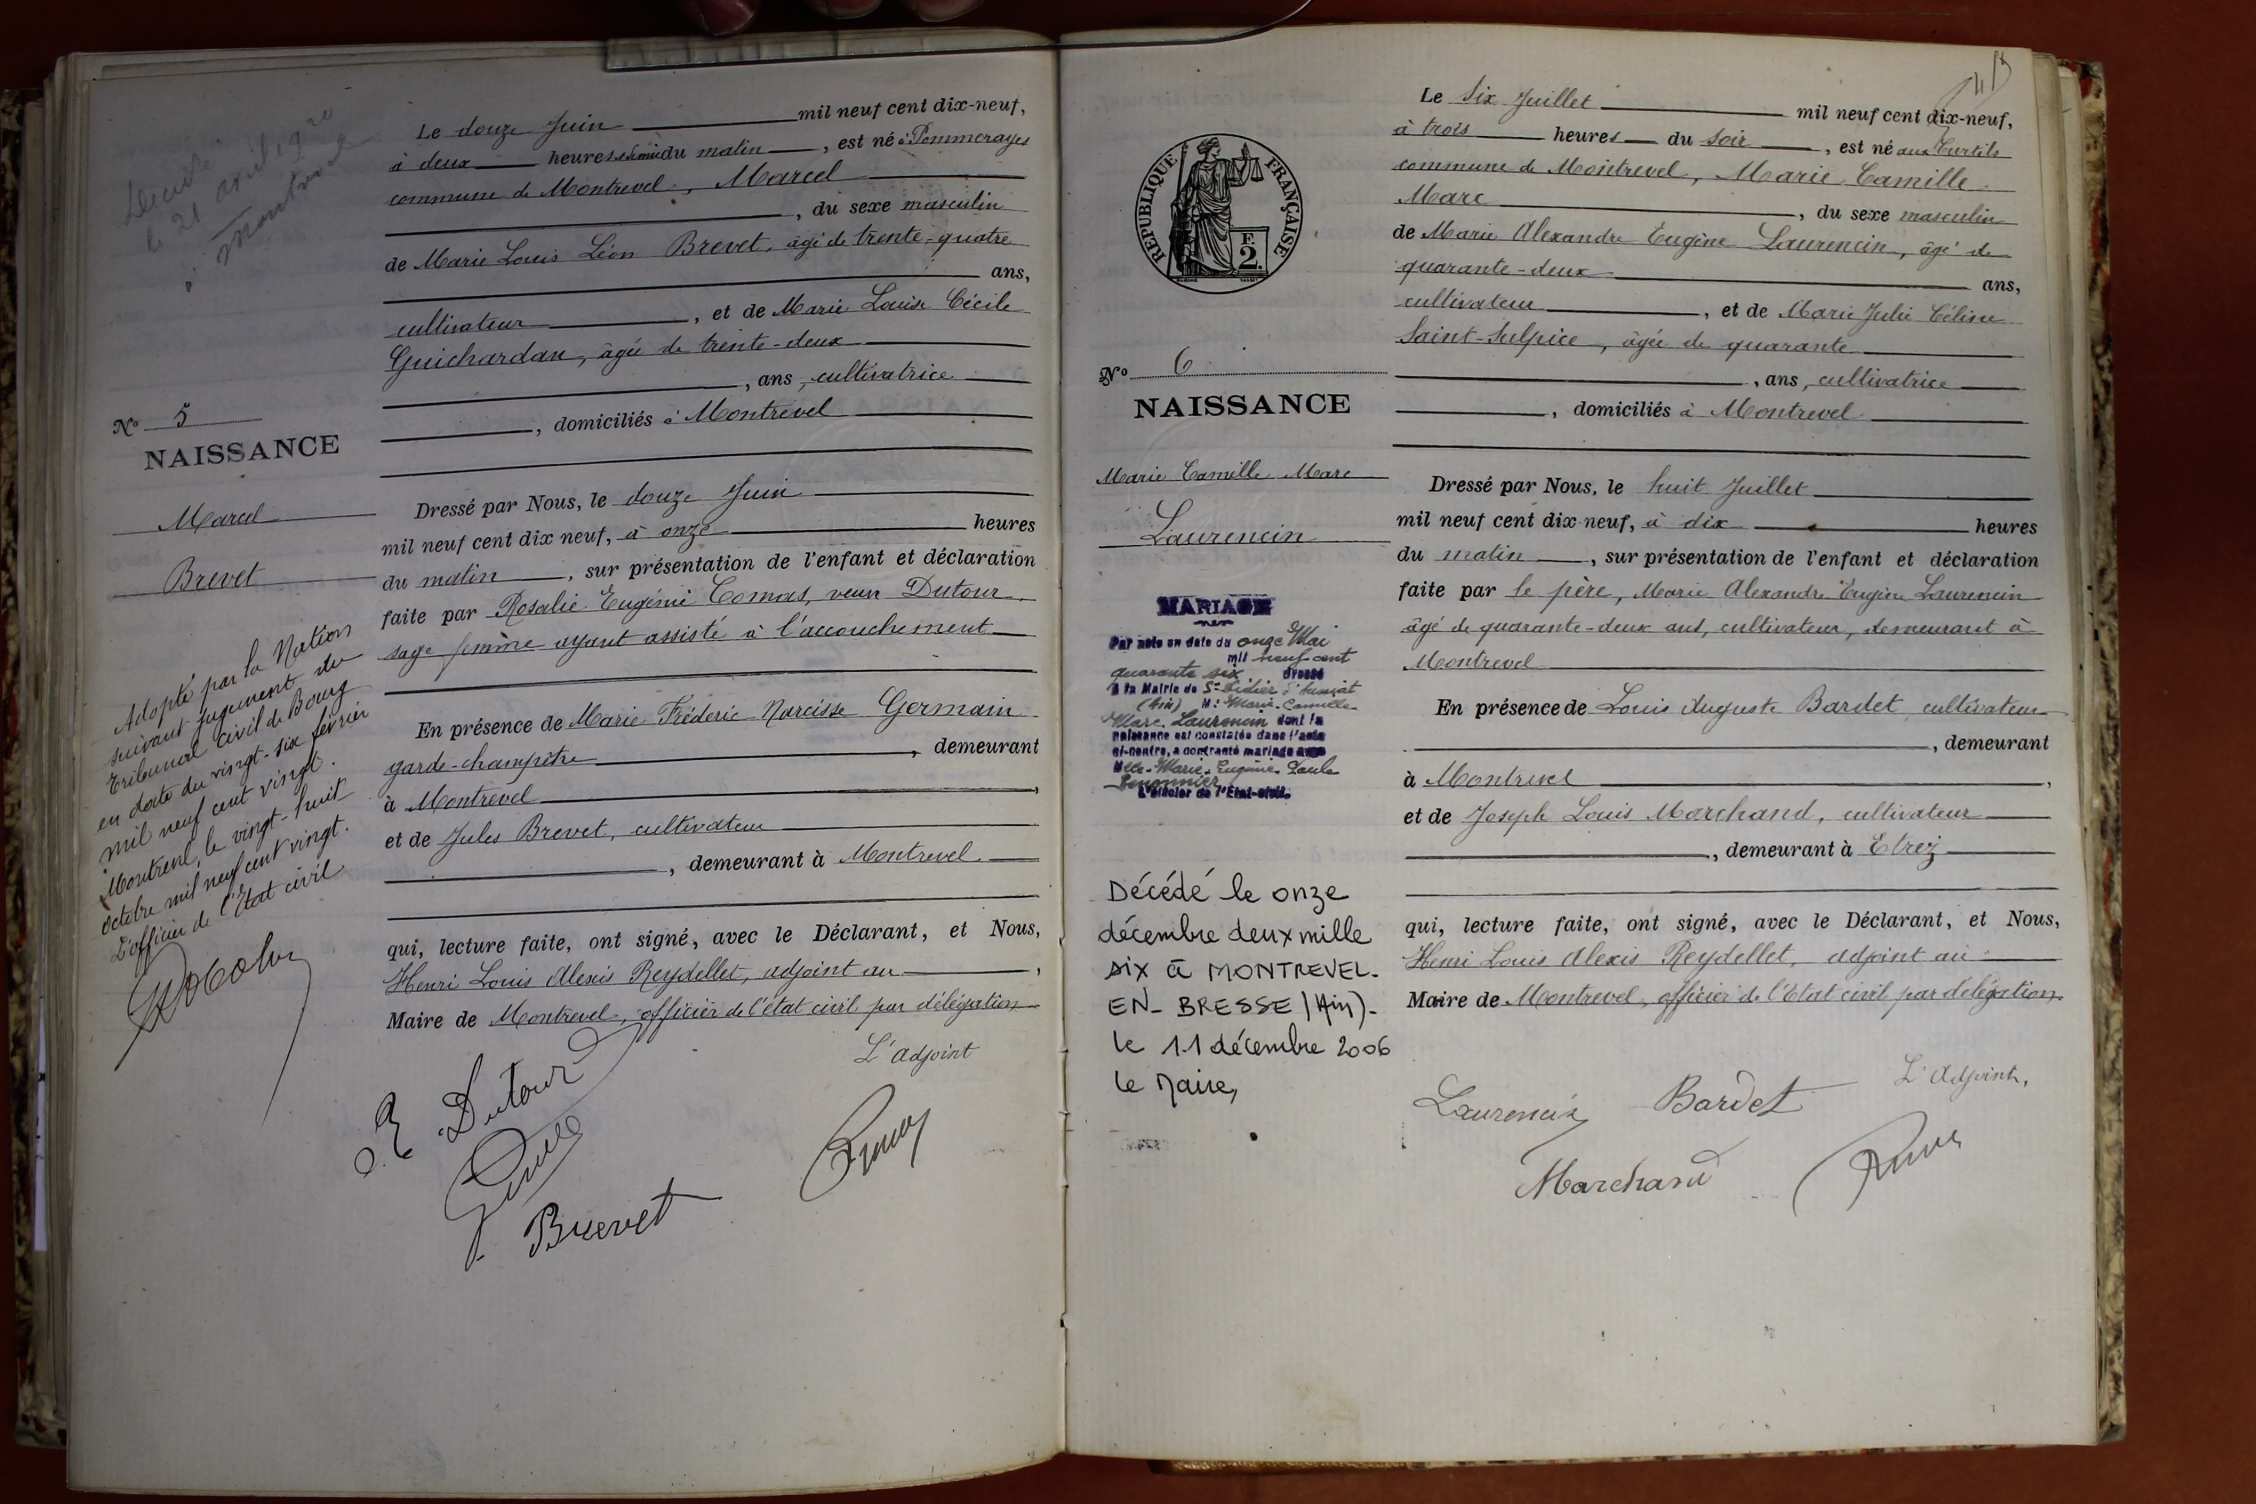 Décédé
le 21 avril 1920
à Montrevel
Nº 5
NAISSANCE
Marcel
Brevet
Adopté par la Nation
suivant jugement du
tribunal civil de Bourg
en date du vingt-six février
mil neuf cent vingt.
Montrevel, le vingt-huit
octobre mil neuf cent vingt.
L'officier de l'Etat civil
Le douze Juin mil neuf cent dix-neuf,
à deux heures et demie du matin, est né à Pommerayes
commune de Montrevel, Marcel
, du sexe masculin
de Marie Louis Léon Brevet, âgé de trente-quatre
ans,
cultivateur, et de Marie Louise Cécile
Guichardan, âgée de trente-deux
, ans, cultivatrice
, domiciliés à Montrevel
Dressé par Nous, le douze Juin
mil neuf cent dix neuf, à onze heures
du matin, sur présentation de l'enfant et déclaration
faite par Rosalie Eugénie Comas, veuve Dutour,
sage femme ayant assisté à l'accouchement
En présence de Marie Fréderic Narcisse Germain
garde-champêtre, demeurant
à Montrevel,
et de Jules Brevet, cultivateur
, demeurant à Montrevel
qui, lecture faite, ont signé, avec le Déclarant, et Nous,
Henri Louis Alexis Reydellet, adjoint au,
Maire de Montrevel, officier de l'état civil par délégation
L'adjoint
R. Dutour
Brevet
RÉPUBLIQUE FRANÇAISE
F.
2.
Nº 6
NAISSANCE
Marie Camille Marc
Laurencin
MARIAGE
Par acte en date du onze Mai
mil neuf cent
quarante six dressé
à la Mairie de St-Didier d'Aussiat
(Ain) M. Marie-Camille-
Marc Laurencin dont la
naissance est constatée dans l'acte
ci-contre, a contracté mariage avec
Mlle Marie-Eugénie-Paule
L'officier de l'Etat-civil.
Décédé le onze
décembre deux mille
six à MONTREVEL-
EN-BRESSE (Ain)-
le 11 décembre 2006
le Maire,
Le Six Juillet mil neuf cent dix-neuf,
à trois heures du soir, est né aux Curtils
commune de Montrevel, Marie Camille
Marc, du sexe masculin
de Marie Alexandre Eugène Laurencin, âgé de
quarante-deux ans,
cultivateur, et de Marie Julie Céline
Saint-Sulpice, âgée de quarante
, ans, cultivatrice
, domiciliés à Montrevel
Dressé par Nous, le huit Juillet
mil neuf cent dix-neuf, à dix heures
du matin, sur présentation de l'enfant et déclaration
faite par le père, Marie Alexandre Eugène Laurencin
âgé de quarante-deux ans, cultivateur, demeurant à
Montrevel
En présence de Louis Auguste Bardet, cultivateur
, demeurant
à Montrevel,
et de Joseph Louis Marchand, cultivateur
, demeurant à Etrez
qui, lecture faite, ont signé, avec le Déclarant, et Nous,
Henri Louis Alexis Reydellet, adjoint au
Maire de Montrevel, officier de l'Etat civil par délégation
L'Adjoint,
Laurencin Bardet
Marchand